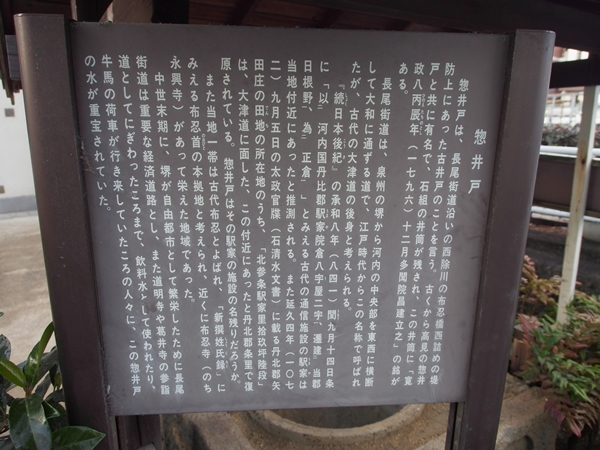 惣井戸
惣井戸は、長尾街道沿いの西除川の布忍橋西詰めの堤
防上にあった古井戸のことを言う。古くから高見の惣井
戸と共に有名で、石組の井筒が残され、この井筒に「寛
政八丙辰年（一七九六）十二月多聞院昌建立之」の銘が
ある。
長尾街道は、泉州の堺から河内の中央部を東西に横断
して大和に通ずる道で、江戸時代からこの名称で呼ばれ
たが、古代の大津道の後身と考えられる。
『続日本後紀』の承和八年（八四一）閏九月十四日条
に「以二河内国丹比郡駅家院倉八宇屋二宇、遷建二当郡
日根野一、為二正倉一」とみえる古代の通信施設の駅家は
当地付近にあったと推測される。また延久四年（一〇七
二）九月五日の太政官牒（石清水文書）に載る丹北郡矢
田庄の田地の所在地のうち、「北参条駅家里拾玖坪陸段」
は、大津道に面した、この付近にあったと丹北郡条里で復
原されている。惣井戸はその駅家の施設の名残りだろうか。
また当地一帯は古代布忍とよばれ、『新撰姓氏録』に
みえる布忍首の本拠地と考えられ、近くに布忍寺（のち
永興寺）があって栄えた地域であった。
中世末期に、堺が自由都市として繁栄したために長尾
街道は重要な経済道路とし、また道明寺や葛井寺の参詣
道としてにぎわったころまで、飲料水として使われたり、
牛馬の荷車が行き来していたころの人々に、この惣井戸
の水が重宝されていた。